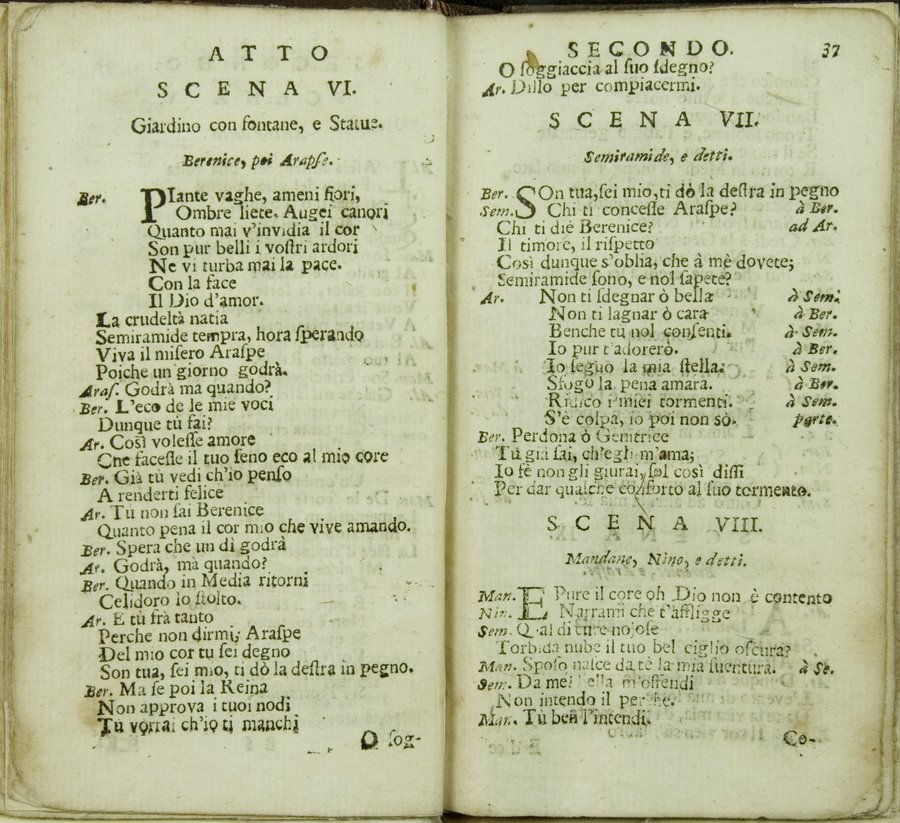 ATTO
SCENA VI.
Giardino con fontane, e Statue.
Berenice, poi Arapſe.
Ber. PIante vaghe, ameni fiori,
Ombre liete. Augei canori
Quanto mai v'invidia il cor
Son pur belli i voſtri ardori
Ne vi turba mai la pace.
Con la face
Il Dio d'amor.
La crudeltà natia
Semiramide tempra, hora ſperando
Viva il miſero Araſpe
Poiche un giorno godrà.
Araſ. Godrà ma quando?
Ber. L'eco de le mie voci
Dunque tù fai?
Ar. Così voleſſe amore
Che faceſſe il tuo ſeno eco al mio core
Ber. Già tù vedi ch'io penſo
A renderti felice
Ar. Tù non ſai Berenice
Quanto pena il cor mio che vive amando.
Ber. Spera che un dì godrà
Ar. Godrà, mà quando?
Ber. Quando in Media ritorni
Celidoro lo ſtolto.
Ar. E tù frà tanto
Perche non dirmi; Araſpe
Del mio cor tu ſei degno
Son tua, ſei mio, ti dò la deſtra in pegno.
Ber. Ma ſe poi la Reina
Non approva i tuoi nodi
Tù vorrai ch'io ti manchi
O ſog-
SECONDO. 37
O ſoggiaccia al ſuo ſdegno?
Ar. Dillo per compiacermi.
SCENA VII.
Semiramide, e detti.
Ber. SOn tua, ſei mio, ti dò la deſtra in pegno
Sem. Chi ti conceſſe Araſpe? à Ber.
Chi ti diè Berenice? ad Ar.
Il timore, il riſpetto
Così dunque s'oblia, che à mè dovete;
Semiramide ſono, e nol ſapete?
Ar. Non ti ſdegnar ò bella à Sem.
Non ti lagnar ò cara à Ber.
Benche tù nol conſenti. à Sem.
Io pur t'adorerò. à Ber.
Io ſeguo la mia ſtella. à Sem.
Sfogo la pena amara. à Ber.
Ridico i miei tormenti. à Sem.
S'è colpa, io poi non sò. parte.
Ber. Perdona ò Genitrice
Tù già ſai, ch'egli m'ama;
Io fè non gli giurai, ſol così diſſi
Per dar qualche conforto al ſuo tormento.
SCENA VIII.
Mandane, Nino, e detti.
Man. E Pure il core oh Dio non è contento
Nin. Narrami che t'affligge
Sem. Qual di cure nojoſe
Torbida nube il tuo bel ciglio oſcura?
Man. Spoſo naſce da tè la mia ſuentura. à Se.
Sem. Da me? bella m'offendi
Non intendo il perche.
Man. Tù ben l'intendi.
Co-